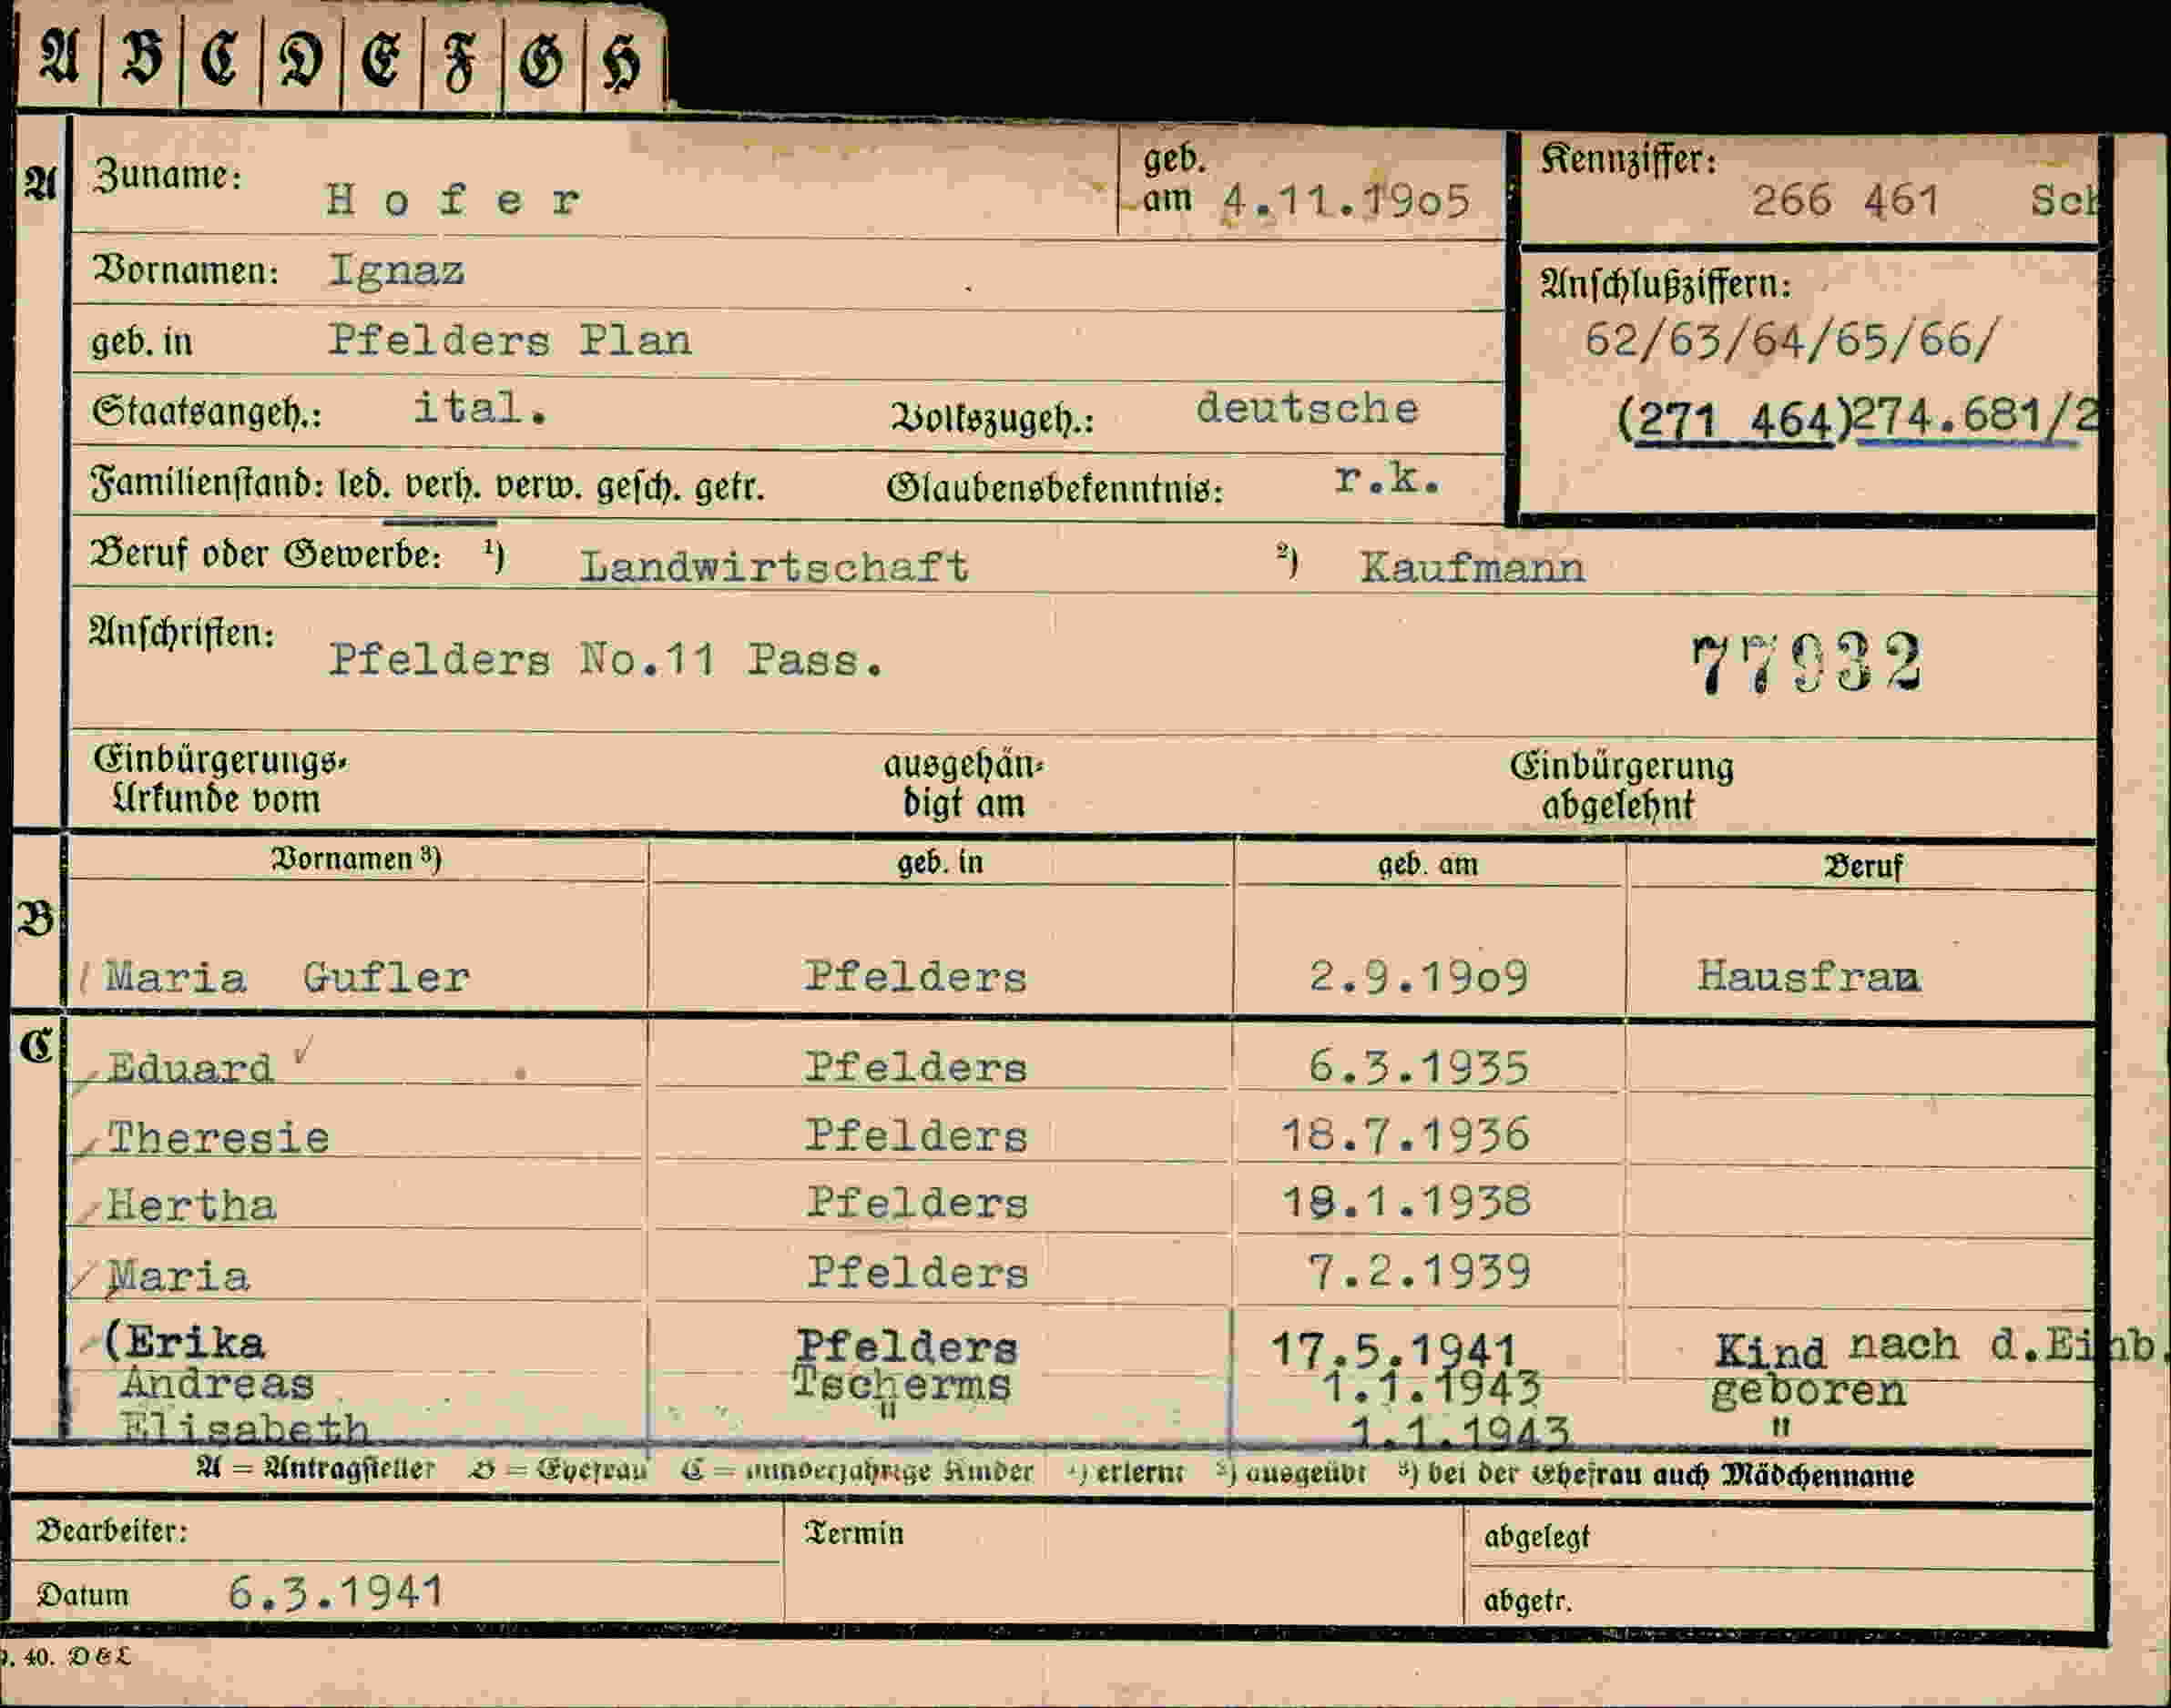 A B C D E F G H
A Zuname: Hofer geb. am 4.11.19o5 Kennziffer: 266 461 Sch
Vornamen: Ignaz
Anschlußziffern:
geb. in Pfelders Plan 62/63/64/65/66/
Staatsangeh.: ital. Volkszugeh.: deutsche (271 464)274.681/2
Familienstand: led. verh. verw. gesch. getr. Glaubensbekenntnis: r.k.
Beruf oder Gewerbe: ¹) Landwirtschaft ²) Kaufmann
Anschriften: Pfelders No.11 Pass. 77932
Einbürgerungs- ausgehän- Einbürgerung
Urkunde vom digt am abgelehnt
Vornamen ³) geb. in geb. am Beruf
B
Maria Gufler Pfelders 2.9.19o9 Hausfrau
C
Eduard Pfelders 6.3.1935
Theresie Pfelders 18.7.1936
Hertha Pfelders .1.1938
Maria Pfelders 7.2.1939
(Erika Pfelders 17.5.1941 Kind nach d.Einb.
Andreas Tscherms 1.1.1943 geboren
Elisabeth " 1.1.1943 "
A = Antragsteller B = Ehefrau C = minderjährige Kinder ¹) erlernt ²) ausgeübt ³) bei der Ehefrau auch Mädchenname
Bearbeiter: Termin abgelegt
Datum 6.3.1941 abgetr.
. 40. D & L